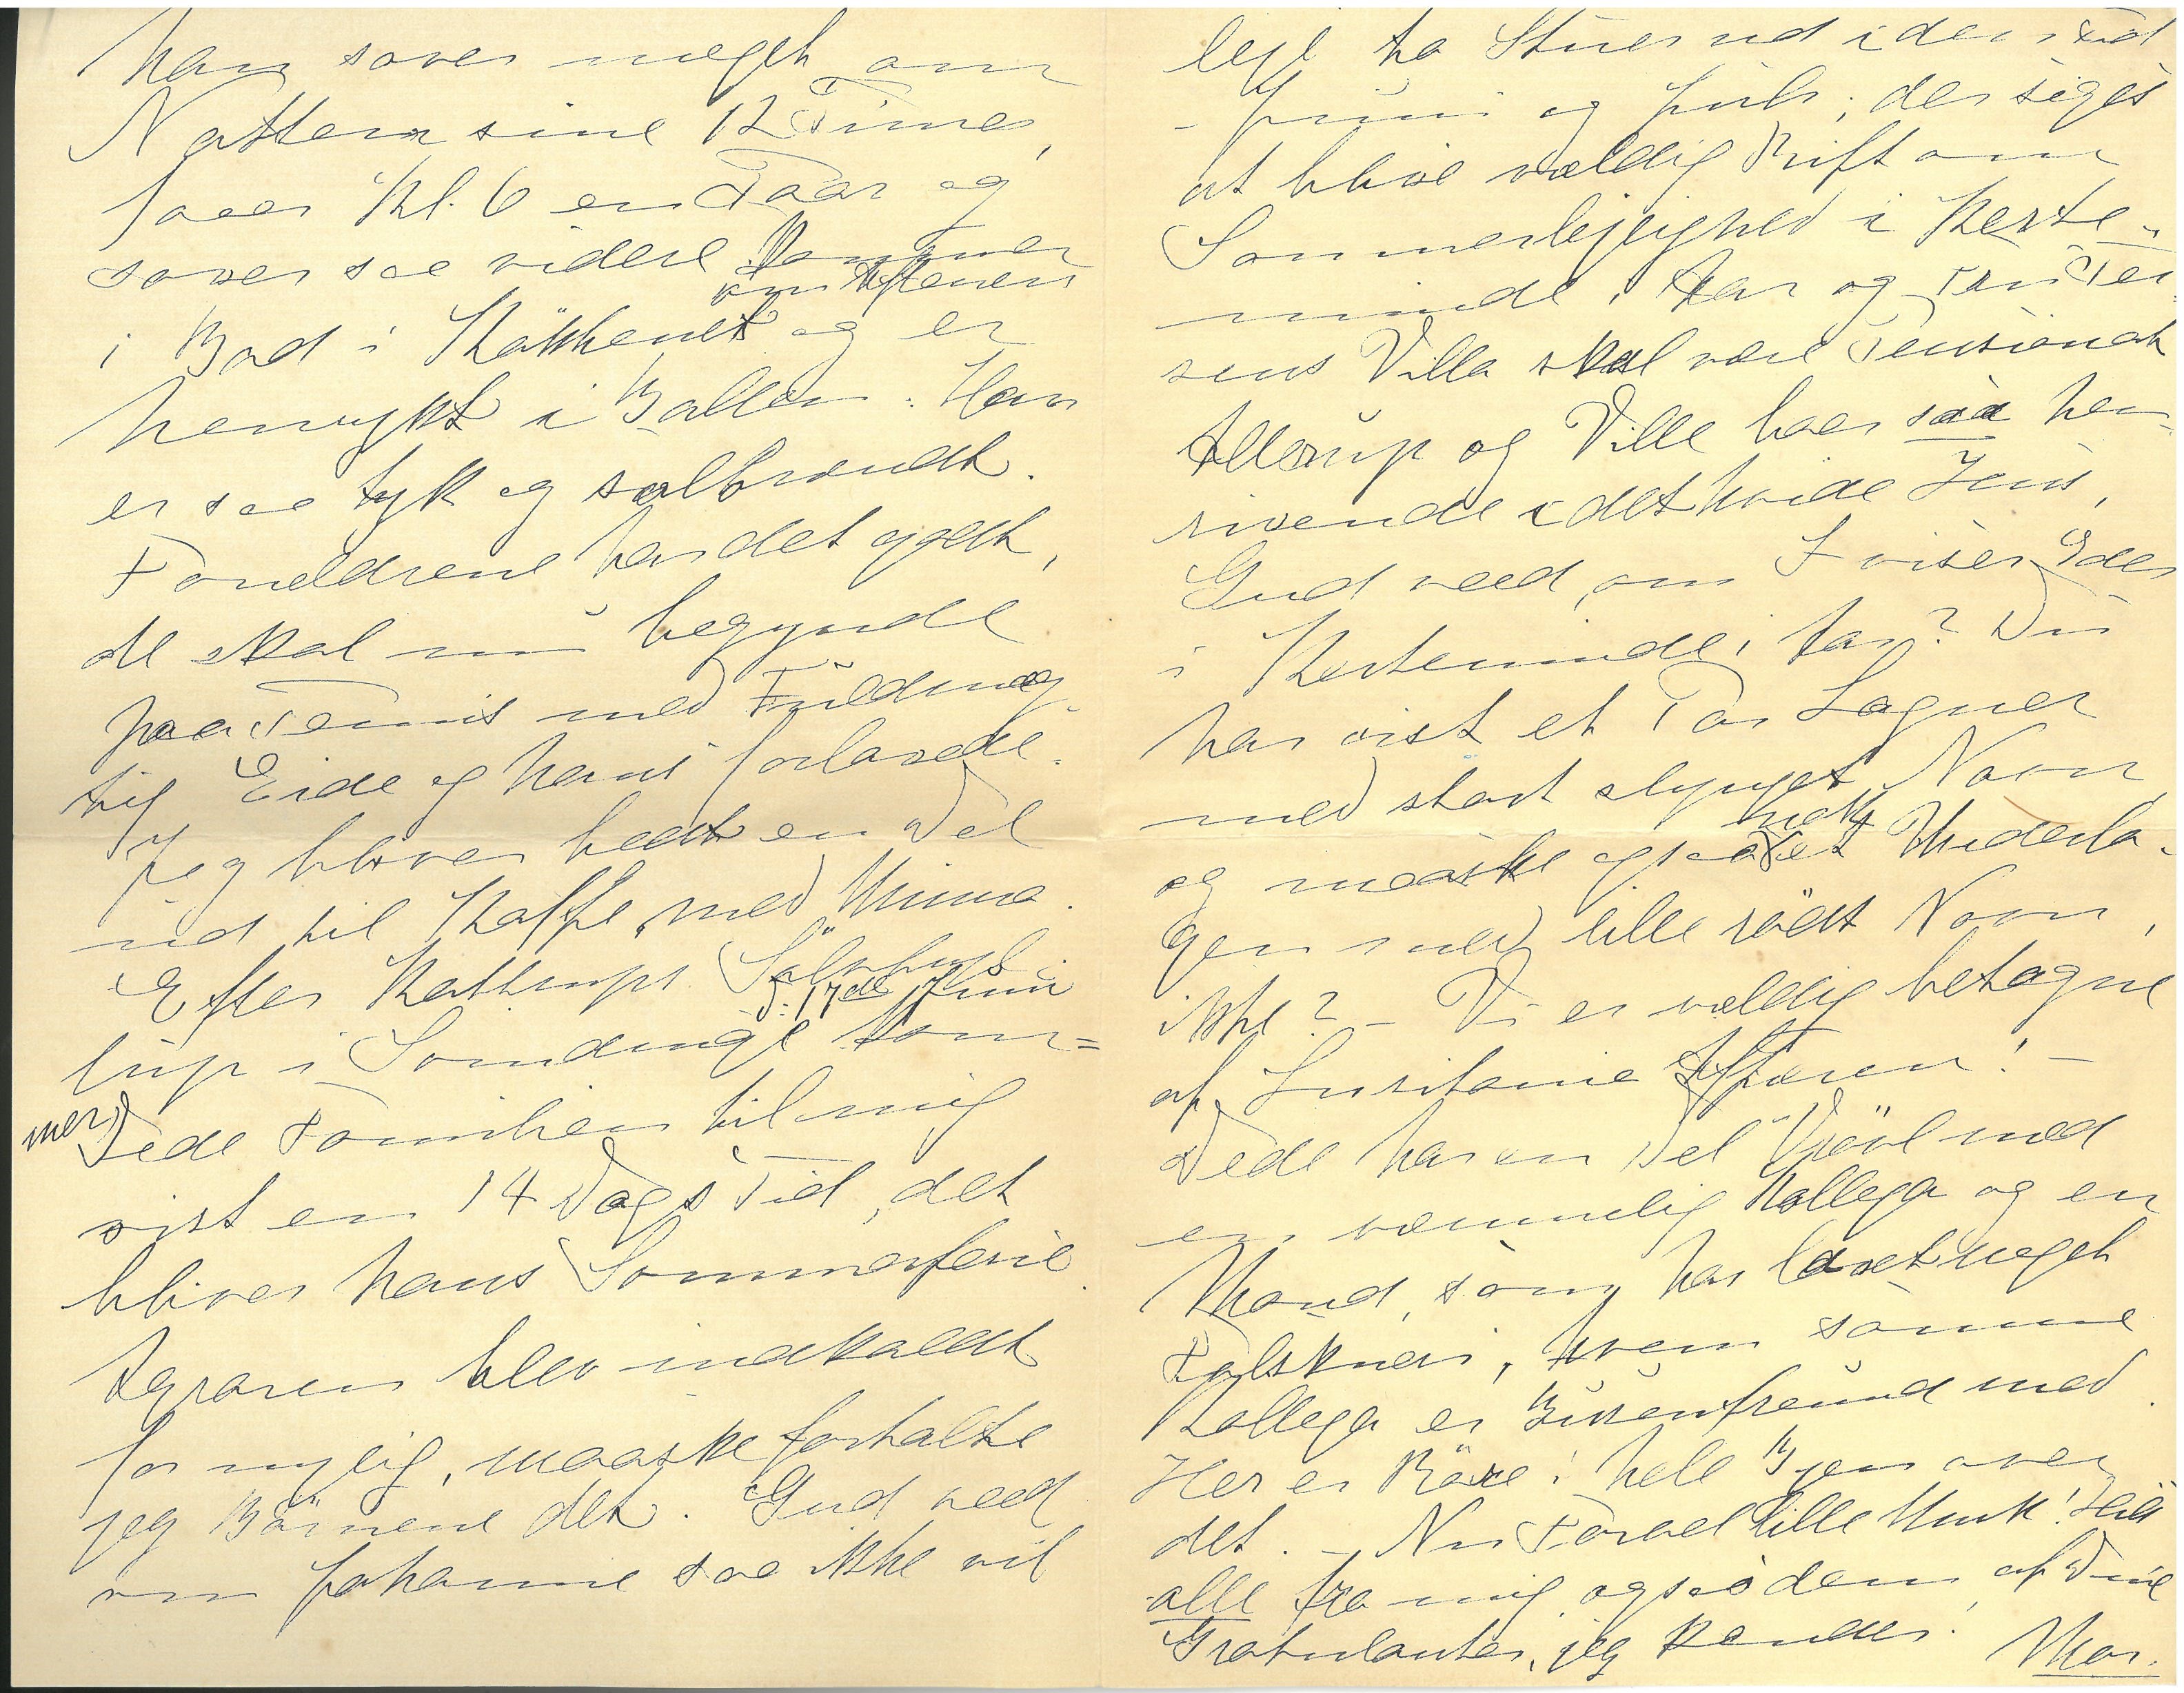 han sover meget om
Natten sine 12 Timer,
faaer Kl. 6 en Taar og
sover saa videre. Kommer
om Aftenen
i Bad i Køkkenet og er
henrykt i Ballen. Han
er saa tyk og solbrændt.
Forældrene har det godt,
de skal nu begynde
paa Tennis med Fuldmæg
tig Eide og hans forlovede.
Jeg bliver bedt en Del
ud til Kaffe, med Minna.
Efter Kattrups Sølvbryl-
d: 17de Juni
lup i Sønderup kom=
mer Dede Familien til mig
vist en 14 Dags Tid, det
bliver hans Sommerferie.
Agraren blev indkaldt
for nylig, maaske fortalte
jeg Børnene det. Gud veed
om Johanne saa ikke vil
leje to Stuer ud i den Tid
- Juni og Juli; der siges
at blive vældig Rift om
Sommerlejlighed i Kerte-
minde i Aar og Fru Peter
sens Villa skal være Pensionat
Allerup og Ville boer saa hen-
rivende i det hvide Hus,
Gud veed, om I viser Eder
i Kerteminde i Aar? Du
har vist et Par Lagner
med stort slynget Navn
og maaske ogsaa et hvidt Underla-
gen med lille rødt Navn,
ikke? - Vi er vældig betagne
af Lusitania Affæren! -
Dede har en Del Vrøvl med
en væmmelig Kollega og en
Mand, som har lavet noget
Falskneri, hvem samme
Kollega er Busenfreund med.
Her er Røre i hele Byen over
det. - Nu Farvel lille Muk! Hils
alle fra mig, ogsaa dem, af Dine
Gratulanter, jeg kender. Mor.